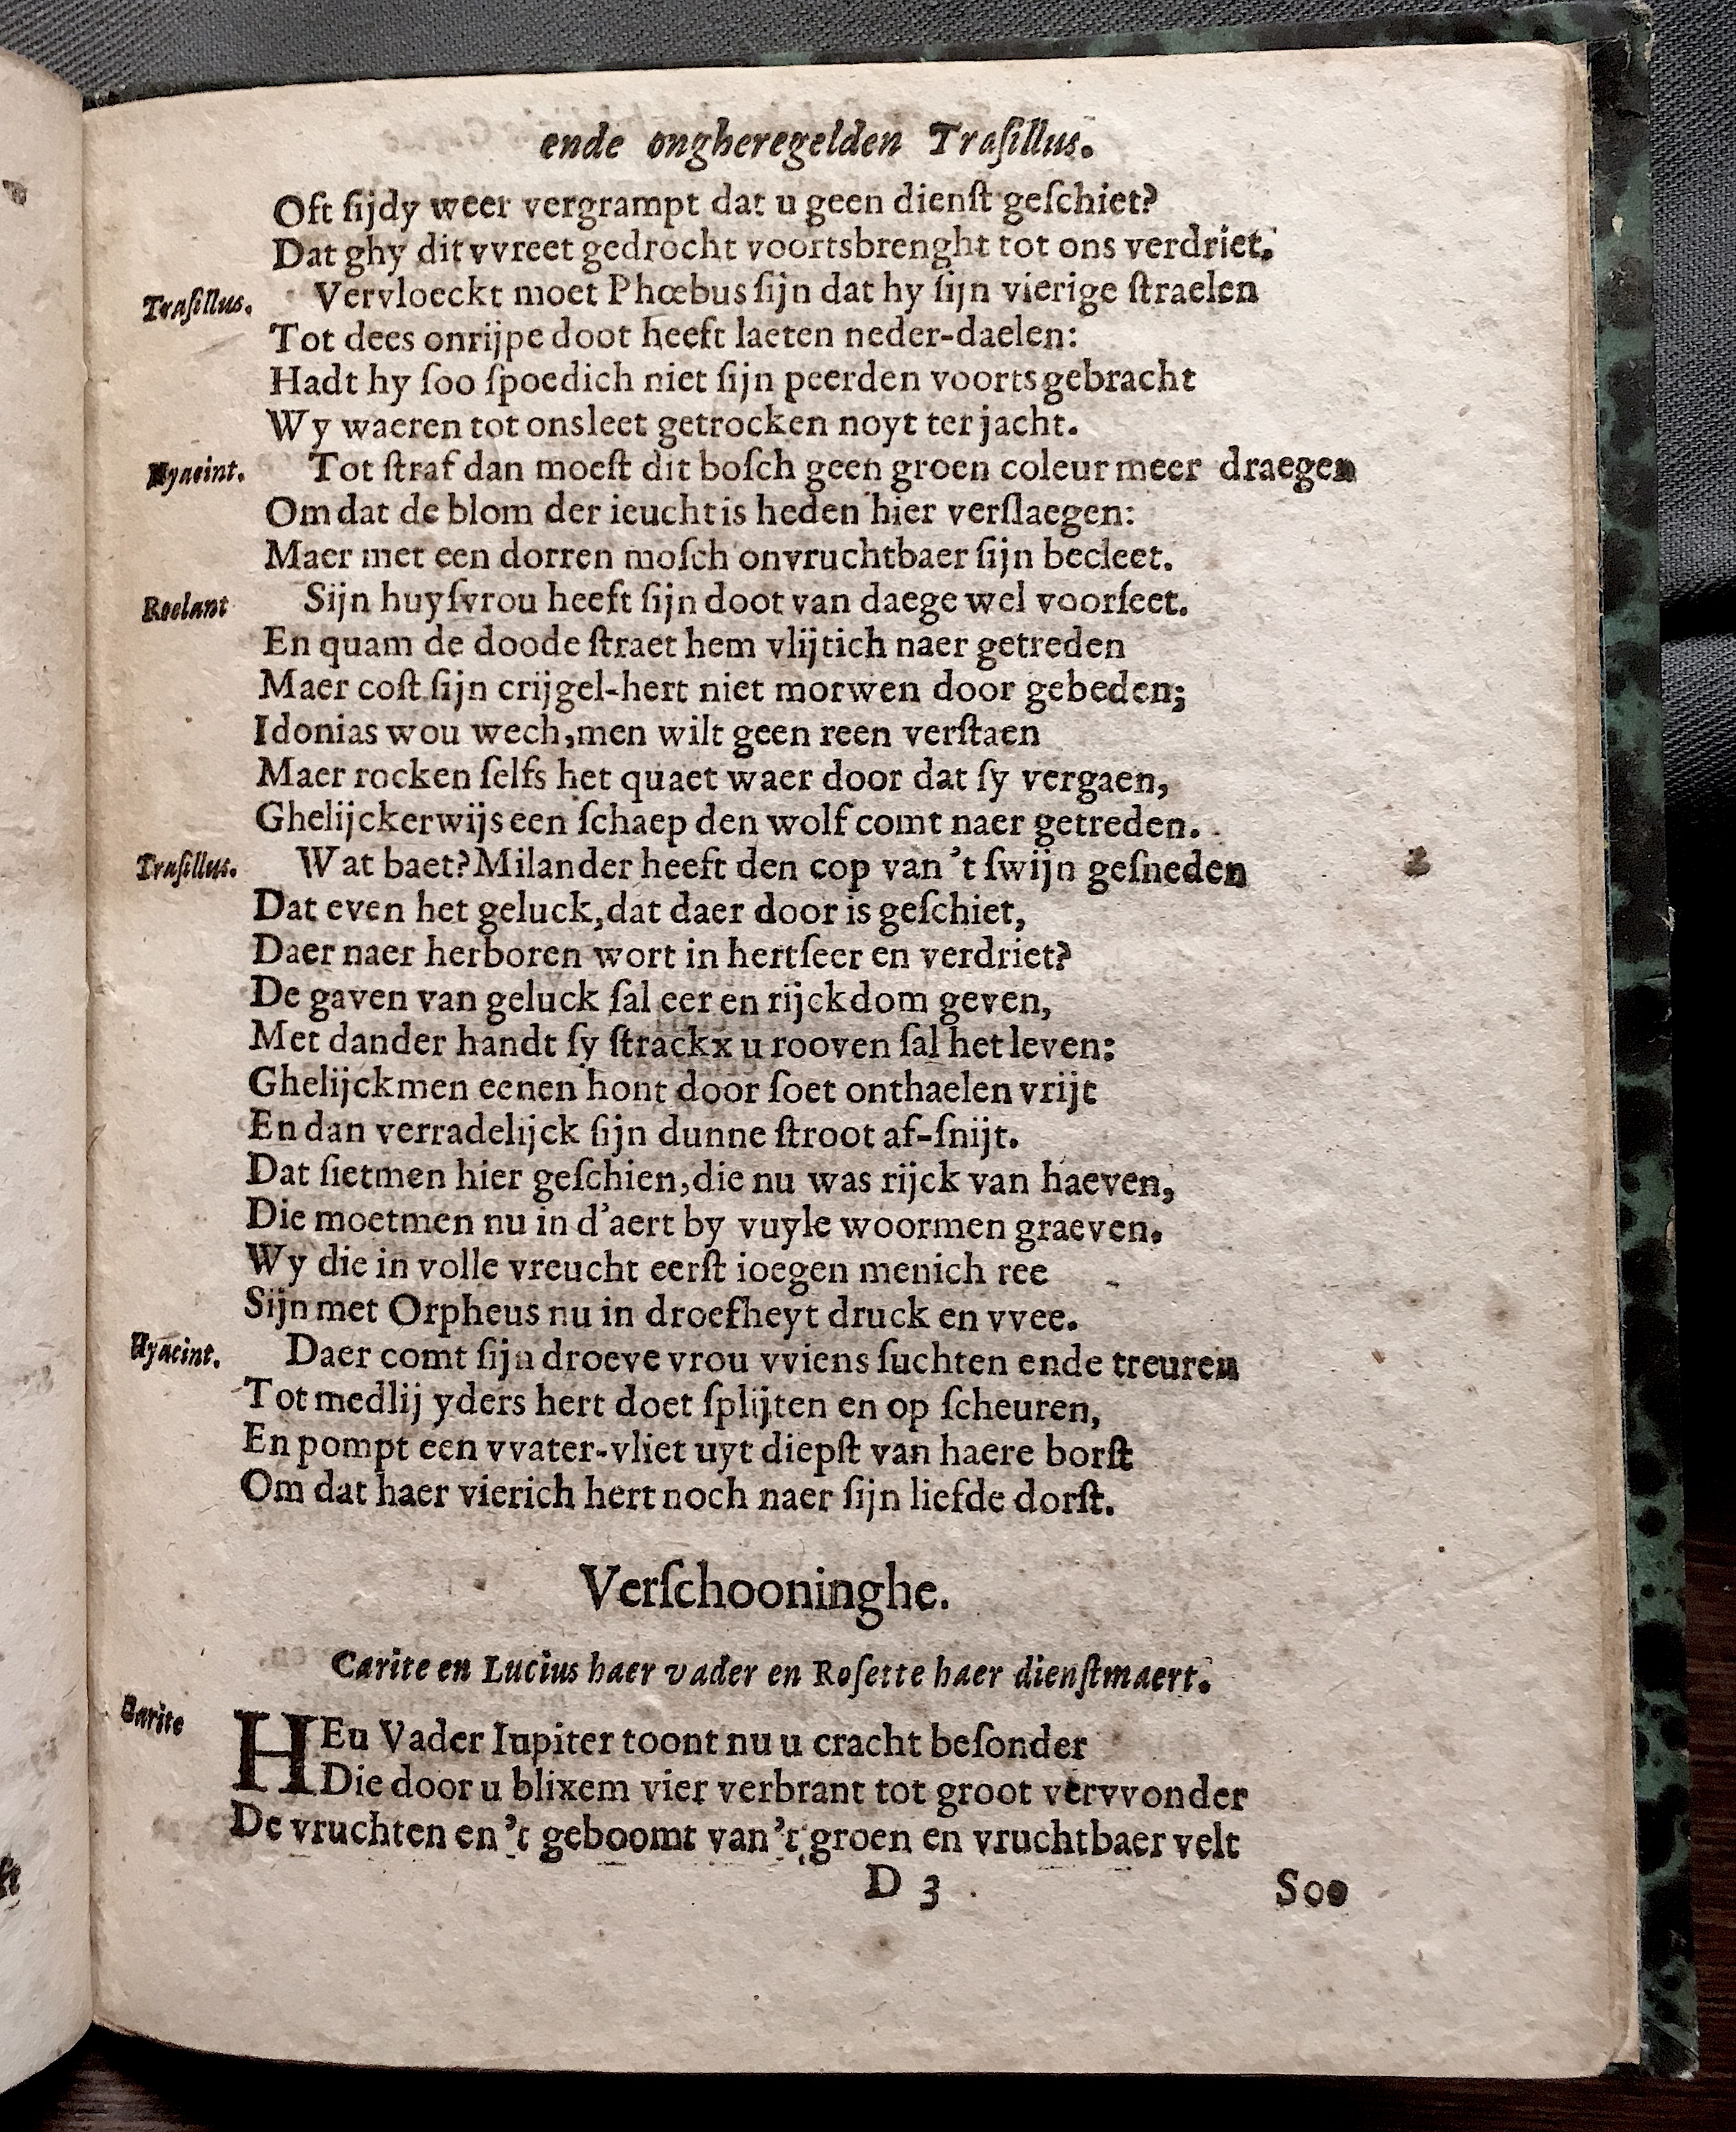 ende ongheregelden Traſillus.
Oft ſijdy weer vergrampt dat u geen dienſt geſchiet?
Dat ghy dit vvreet gedrocht voortsbrenght tot ons verdriet.
Traſillus. Vervloeckt moet Phœbus ſijn dat hy ſijn vierige ſtraelen
Tot dees onrijpe doot heeft laeten neder-daelen:
Hadt hy ſoo ſpoedich niet ſijn peerden voortsgebracht
Wy waeren tot onsleet getrocken noyt ter jacht.
Hyacint. Tot ſtraf dan moeſt dit boſch geen groen coleur meer draegen
Om dat de blom der ieucht is heden hier verſlaegen:
Maer met een dorren moſch onvruchtbaer ſijn becleet.
Roelant Sijn huyſvrou heeft ſijn doot van daege wel voorſeet.
En quam de doode ſtraet hem vlijtich naer getreden
Maer coſt ſijn crijgel-hert niet morwen door gebeden;
Idonias wou wech, men wilt geen reen verſtaen
Maer rocken ſelfs het quaet waer door dat ſy vergaen,
Ghelijckerwijs een ſchaep den wolf comt naer getreden.
Traſillus. Wat baet? Milander heeft den cop van 't ſwijn geſneden
Dat even het geluck, dat daer door is geſchiet,
Daer naer herboren wort in hertſeer en verdriet?
De gaven van geluck ſal eer en rijckdom geven,
Met dander handt ſy ſtrackx u rooven ſal het leven:
Ghelijckmen eenen hont door ſoet onthaelen vrijt
En dan verradelijck ſijn dunne ſtroot af-ſnijt.
Dat ſietmen hier geſchien, die nu was rijck van haeven,
Die moetmen nu in d'aert by vuyle woormen graeven.
Wy die in volle vreucht eerſt ioegen menich ree
Sijn met Orpheus nu in droefheyt druck en vvee.
Hyacint. Daer comt ſijn droeve vrou vviens ſuchten ende treuren
Tot medlij yders hert doet ſplijten en op ſcheuren,
En pompt een vvater-vliet uyt diepſt van haere borſt
Om dat haer vierich hert noch naer ſijn liefde dorſt.
Verſchooninghe.
Carite en Lucius haer vader en Roſette haer dienſtmaert.
Carite HEu Vader Iupiter toont nu u cracht beſonder
Die door u blixem vier verbrant tot groot vervvonder
De vruchten en 't geboomt van 't groen en vruchtbaer velt
D 3 Soo